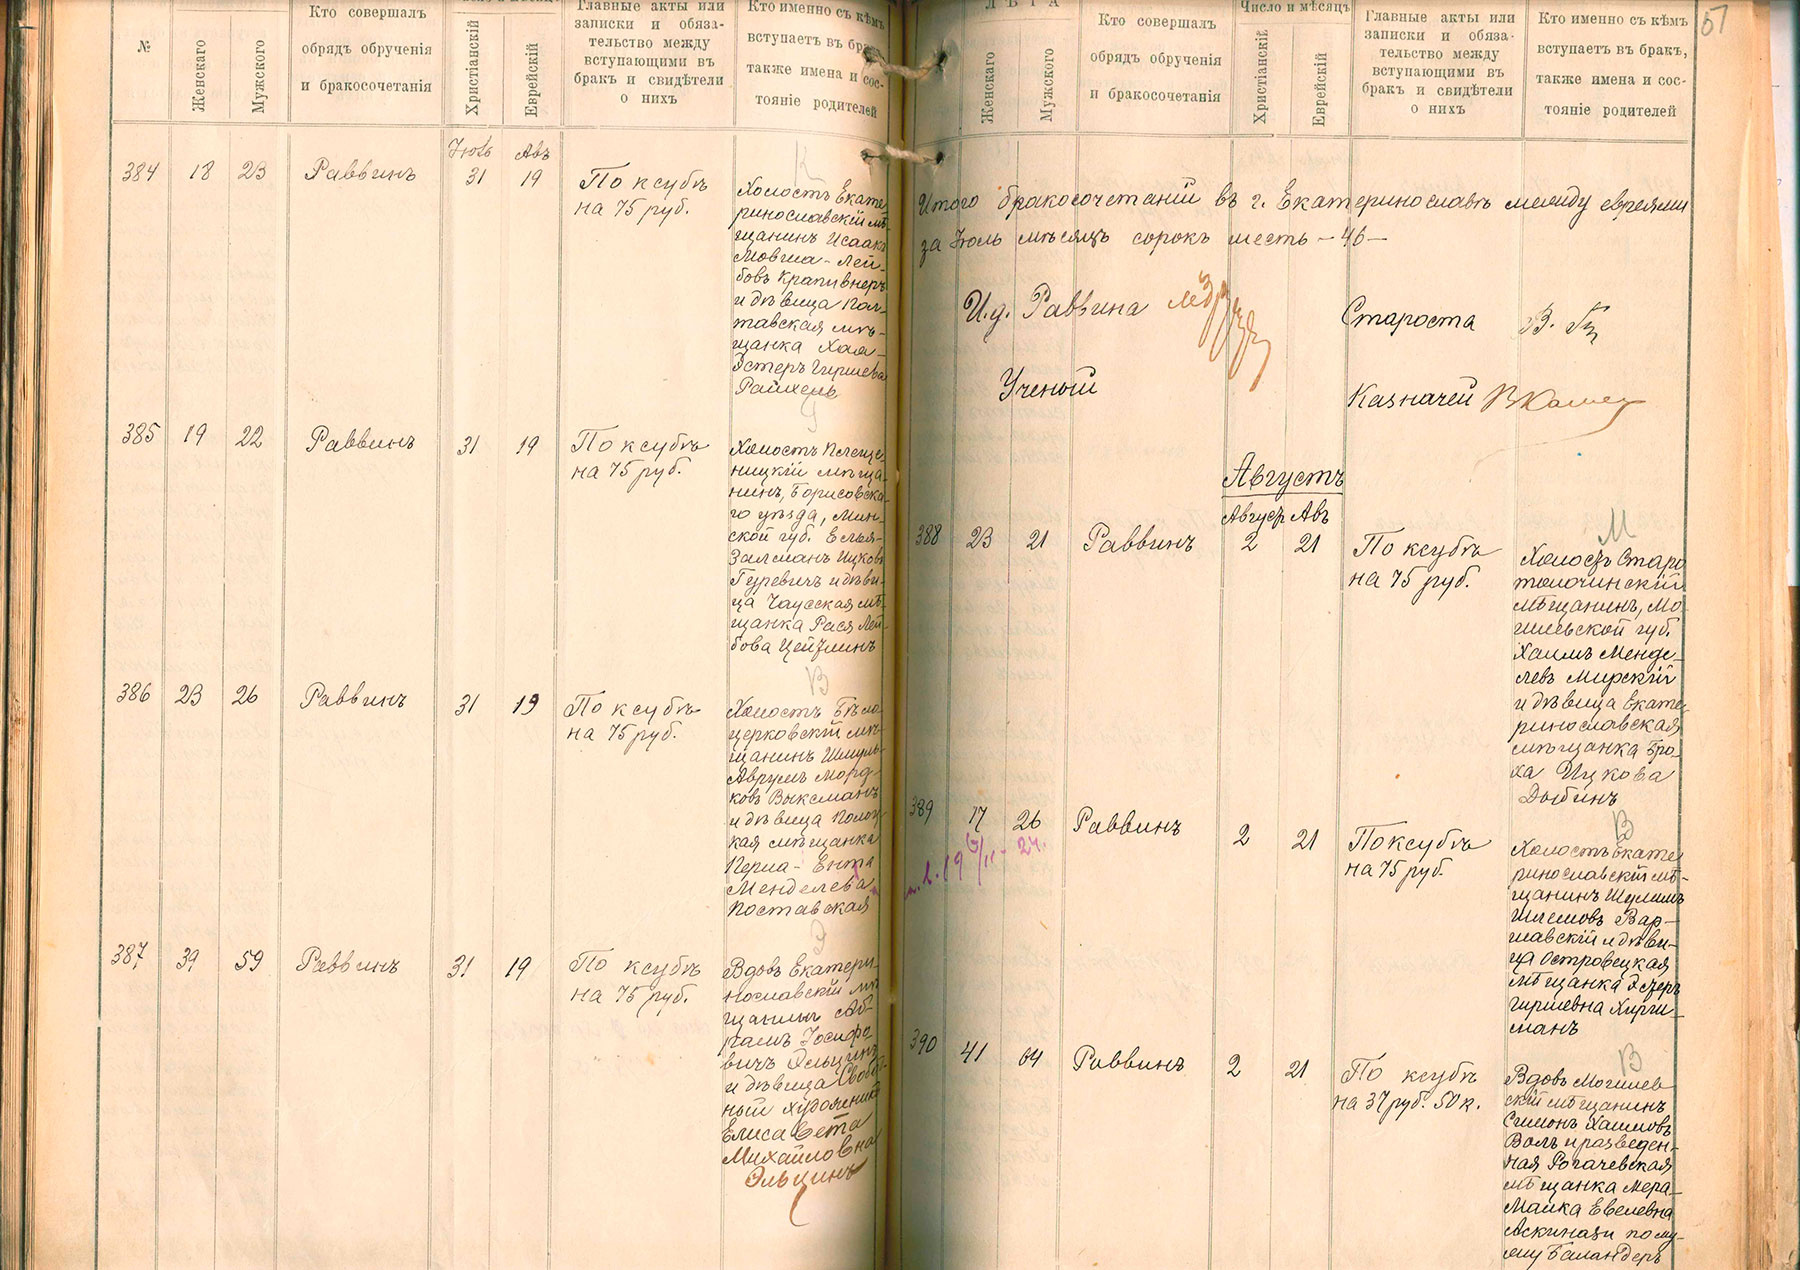 №
Женскаго
Мужского
Кто совершалъ
обрядъ обрученія
и бракосочетанія
Христіанскій
Еврейскій
Главные акты или
записки и обяза-
тельство между
вступающими въ
бракъ и свидѣтели
о нихъ
Кто именно съ кѣмъ
вступаетъ въ бракъ,
также имена и сос-
тояніе родителей
Іюль Авъ
384 18 23 Раввинъ 31 19
По ксубѣ
на 75 руб.
Холостъ Екате-
ринославскій мѣ-
щанинъ Исаакъ
Мовша-Лей-
бовъ Крапивнеръ
и дѣвица Пол-
тавская мѣ-
щанка Хая-
Эстеръ Гиршева
Райхель
385 19 22 Раввинъ 31 19
По ксубѣ
на 75 руб.
Холостъ Плеще-
ницкій мѣща-
нинъ, Борисовска-
го уѣзда, Мин-
ской губ. Елья-
Залманъ Ицковъ
Гуревичъ и дѣви-
ца Чаусская мѣ-
щанка Рася Лей-
бова Цейтлинъ
В
386 23 26 Раввинъ 31 19
По ксубѣ
на 75 руб.
Холостъ Бѣло-
церковскій мѣ-
щанинъ Шмуль-
Аврумъ Морд-
ковъ Выксманъ
и дѣвица Полоц-
кая мѣщанка
Перла-Ента
Менделева
Поставская
Э
387 39 59 Раввинъ 31 19
По ксубѣ
на 75 руб.
Вдовъ Екатери-
нославскій мѣ-
щанинъ Аб-
рамъ Іосифо-
вичъ Эльцинъ
и дѣвица Свобод-
ный художникъ
Елисавета
Михайловна
Эльцинъ
57
ЛѢТА
Женскаго
Мужского
Кто совершалъ
обрядъ обрученія
и бракосочетанія
Число и мѣсяцъ
Христіанскій
Еврейскій
Главные акты или
записки и обяза-
тельство между
вступающими въ
бракъ и свидѣтели
о нихъ
Кто именно съ кѣмъ
вступаетъ въ бракъ,
также имена и сос-
тояніе родителей
Итого бракосочетаній въ г. Екатеринославѣ между евреями
за Іюль мѣсяцъ сорокъ шесть - 46 -
И.д. Раввина
Староста
Ученый
Казначей
Августъ
Август Авъ
М
388 23 21 Раввинъ 2 21
По ксубѣ
на 75 руб.
Холостъ Старо-
толочинскій
мѣщанинъ, Мо-
гилевской губ.
Хаимъ Менде-
левъ Мирскій
и дѣвица Екате-
ринославская
мѣщанка Бро-
ха Ицкова
Дыбинъ
В
389 17 26 Раввинъ 2 21
По ксубѣ
на 75 руб.
Холостъ Екате-
ринославскій мѣ-
щанинъ Шулимъ
Шлемовъ Вар-
шавскій и дѣви-
ца Островецкая
мѣщанка Эстеръ
Гиршевна Хирги-
манъ
В
390 41 64 Раввинъ 2 21
По ксубѣ
на 37 руб. 50 к.
Вдовъ Могилев-
скій мѣщанинъ
Симонъ Хаимовъ
Волъ и разведен-
ная Рогачевская
мѣщанка Мера-
Малка Евелевна
Аскинази по му-
жу Баландеръ